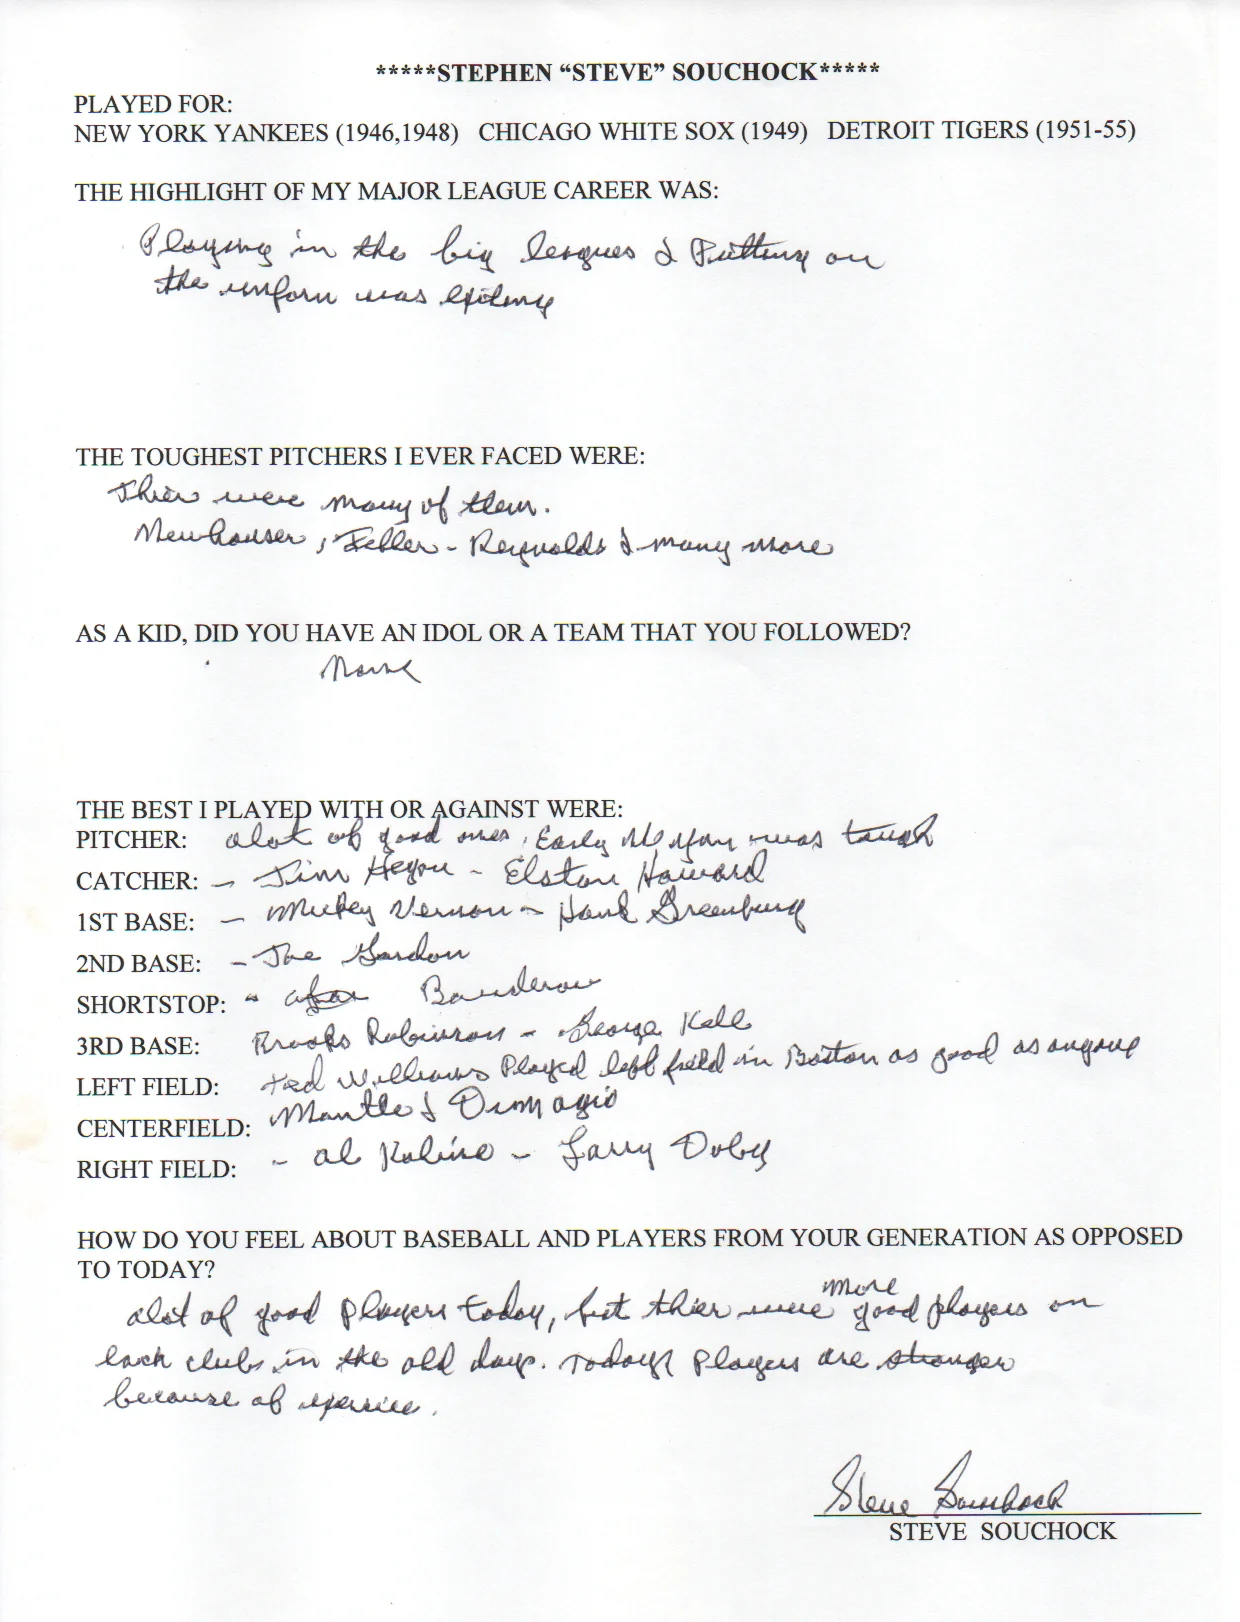 *****STEPHEN “STEVE” SOUCHOCK*****
PLAYED FOR:
NEW YORK YANKEES (1946,1948) CHICAGO WHITE SOX (1949) DETROIT TIGERS (1951-55)
THE HIGHLIGHT OF MY MAJOR LEAGUE CAREER WAS:
Playing in the big leagues & Putting on
the uniform was
THE TOUGHEST PITCHERS I EVER FACED WERE:
Thier were many of them.
Newhouser, Feller - Reynolds & many more
AS A KID, DID YOU HAVE AN IDOL OR A TEAM THAT YOU FOLLOWED?
None
THE BEST I PLAYED WITH OR AGAINST WERE:
PITCHER: alot of good ones, Early was tough
CATCHER: - Jim Hegan - Elston Howard
1ST BASE: - Mickey Vernon - Hank Greenburg
2ND BASE: - Joe Gordon
SHORTSTOP: -
3RD BASE: Brooks Robinson - George Kell
LEFT FIELD: Ted Williams Played left field in Boston as good as anyone
CENTERFIELD: Mantle & Dimagio
RIGHT FIELD: - Al Kaline - Larry Doby
HOW DO YOU FEEL ABOUT BASEBALL AND PLAYERS FROM YOUR GENERATION AS OPPOSED
TO TODAY?
alot of good players today, but thier were more good players on
each clubs in the old days. Todays players are stronger
because of
Steve Souchock
STEVE SOUCHOCK